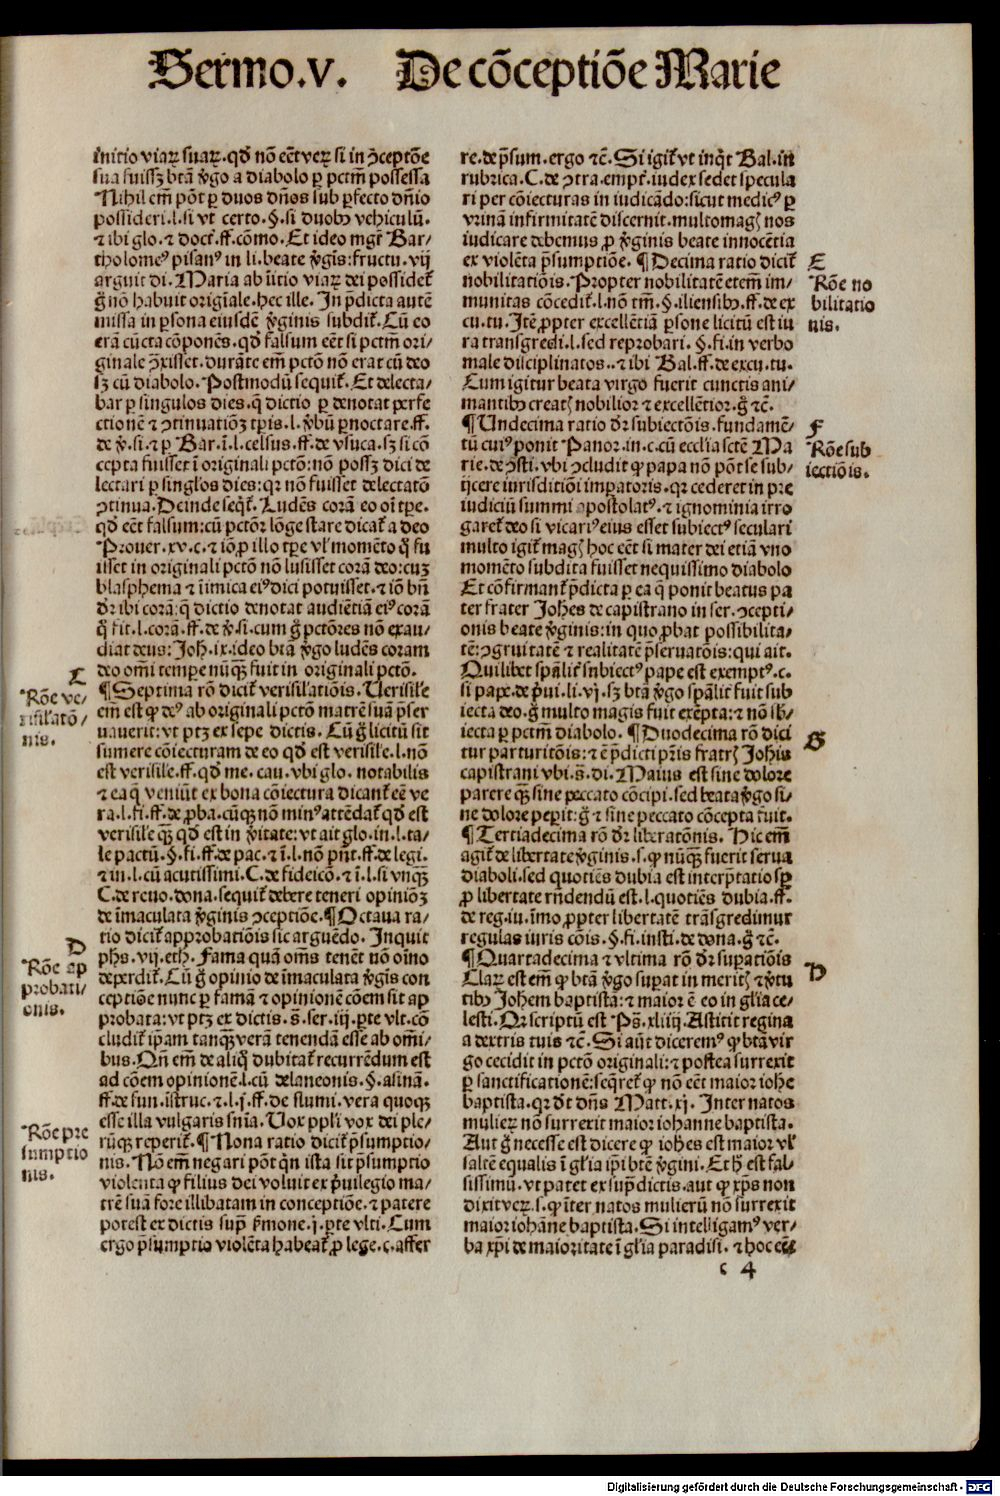 Sermo.v. De cōceptiōe Marie
initio viaꝝ suaꝝ. qḋ nō eēt veꝝ si in ꝯceptōe
sua fuissꝫ btā ỽgo a diabolo ꝑ pctm̄ possessa
Nihil em̄ pōt ꝑ duos dn̄os sub ꝑfecto dn̄io
possideri. l. si vt certo. §. si duobꝰ vehiculū.
⁊ ibi glo. ⁊ doct. ff. cōmo. Et ideo mgr̄ Bar-
tholomeꝰ pisanꝰ in li. beate ỽgis: fructu. vij
arguit di. Maria ab īitio viaꝝ dei possidet̄
g̊ nō habuit origīale. hec ille. In p̄dicta autē
missa in ꝑsona eiusdē ỽginis subdit̄. Cū eo
erā cūcta cōponēs. qḋ falsum eēt si pctm̄ ori-
ginale ꝯ̄xisset. durāte em̄ pctō nō erat cū deo
sꝫ cū diabolo. Postmodū sequit̄. Et delecta-
bar ꝑ singulos dies. q̄ dictio ꝑ denotat ꝑfe
ctionē ⁊ ꝯtinuatiōꝫ tp̄is. l. ỽbū ꝑnoctare. ff.
de ỽ. si. ⁊ ꝑ Bar. ī. l. celsus. ff. de vsuca. sꝫ si cō
cepta fuisset ī originali pctō: nō possꝫ dici de
lectari ꝑ singl̓os dies: qꝛ nō fuisset delectatō
ꝯtinua. Deinde seqt̄. Ludēs corā eo oī tꝑe.
qḋ eēt falsum: cū pctōꝝ lōge stare dicat̄ a deo
Prouer. xv. c. ⁊ iō ꝓ illo tꝑe vl̓ momēto q̊ fu
isset in originali pctō nō lusisset corā deo: cuꝫ
blasphema ⁊ īimica eiꝰ dici potuisset. ⁊ iō bn̄
dr̄ ibi corā: q̄ dictio denotat audiētiā eiꝰ corā
q̊ fit. l. corā. ff. de ỽ. si. cum g̊ pctōres nō exau-
diat deus: Joh. ix. ideo btā ỽgo ludēs coram
deo omī tempe nūq̄ꝫ fuit in originali pctō.
¶ Septima rō dicit̄ verisilatiōis. Uerisil̓e
em̄ est ꝙ deꝰ ab originali pctō matrē suā p̄ser
uauerit: vt ptꝫ ex sepe dictis. Cū g̊ licitū sit
sumere cōiecturam de eo qḋ est verisil̓e. l. nō
est verisil̓e. ff. qḋ me. cau. vbi glo. notabilis
⁊ ea q̄ veniūt ex bona cōiectura dicant̄ eē ve
ra. l. fi. ff. de ꝓba. cūqꝫ nō minꝰ attēdat̄ qḋ est
verisil̓e qꝫ qḋ est in ỽitate: vt ait glo. in. l. ta-
le pactū. §. fi. ff. de pac. ⁊ ī. l. nō pn̄t. ff. de legi.
⁊ in. l. cū acutissimi. C. de fideicō. ⁊ ī. l. si vnqꝫ
C. de reuo. dona. sequit̄ debere teneri opiniōꝫ
de īmaculata ỽginis ꝯceptiōe. ¶ Octaua ra-
tio dicit̄ approbatiōis sic arguēdo. Inquit
phs. vij. eth. Fama quā om̄s tenēt nō oīno
deperdit̄. Cū g̊ opinio de īmaculata ỽgīs con
ceptiōe nunc ꝑ famā ⁊ opinionē cōem sit ap
probata: vt ptꝫ ex dictis. s̄. ser. iij. ꝑte vlt. cō
cludit̄ ip̄am tanqꝫ verā tenendā esse ab omī-
bus. Qn̄ em̄ de aliq̊ dubitat̄ recurrēdum est
ad cōem opinionē. l. cū delaneonis. §. asinā.
ff. de fun. istruc. ⁊. l. j. ff. de flumi. vera quoqꝫ
esse illa vulgaris sn̄ia. Uox ppl̓i vox dei ple-
rūqꝫ reperit̄. ¶ Nona ratio dicit̄ p̄sumptio-
nis. Nō em̄ negari pōt qn̄ ista sit p̄sumptio
violenta ꝙ filius dei voluit ex p̄uilegio ma-
trē suā fore illibatam in conceptiōe. ⁊ patere
potest ex dictis sup̄ s̄mone. j. ꝑte vlti. Cum
ergo p̄sumptio violēta habeat̄ ꝓ lege. c. affer
re. de p̄sum. ergo ⁊c. Si igit̄ vt inq̇t Bal. in
rubrica. C. de ꝯtra. empt̄. iudex sedet specula
ri per cōiecturas in iudicādo: sicut medicꝰ ꝑ
vrinā infirmitatē discernit. multomag̓ nos
iudicare debemus ꝓ ỽginis beate innocētia
ex violēta p̄sumptiōe. ¶ Decima ratio dicit̄
nobilitatiōis. Propter nobilitatē etem̄ im-
munitas cōcedit̄. l. nō tm̄. §. iliensibꝰ. ff. de ex
cu. tu. Itē ꝓpter excellētiā ꝑsone licitū est iu
ra transgredi. l. sed reprobari. §. fi. in verbo
male disciplinatos.. ⁊ ibi Bal. ff. de excu. tu.
Cum igitur beata virgo fuerit cunctis ani-
mantibꝰ creat̓ nobilior ⁊ excellētior. g̊ ⁊c.
¶ Undecima ratio dr̄ subiectōis. fundamē-
tū cuiꝰ ponit Panor. in. c. cū eccl̓ia sctē Ma
rie. de ꝯsti. vbi ꝯcludit ꝙ papa nō pōt se sub-
ijcere iurisditiōi imꝑatoris. qꝛ cederet in pre
iudiciū summi apostolatꝰ. ⁊ ignominia irro
garet̄ deo si vicariꝰ eius esset subiectꝰ seculari
multo igit̄ mag̓ hoc eēt si mater dei etiā vno
momēto subdita fuisset nequissimo diabolo
Et cōfirmant̄ p̄dicta ꝑ ea q̄ ponit beatus pa
ter frater Johēs de capistrano in ser. ꝯcepti-
onis beate ỽginis: in quo ꝓbat possibilita-
tē: ꝯgruitatē ⁊ realitatē p̄seruatōis: qui ait.
Quilibet sp̄alit̓ subiectꝰ pape est exemptꝰ. c.
si pape. de p̄ui. li. vj. sꝫ btā ỽgo sp̄alit̓ fuit sub
iecta deo. g̊ multo magis fuit exēpta: ⁊ nō sb̄-
iecta ꝑ pctm̄ diabolo. ¶ Duodecima rō dici
tur parturitōis: ⁊ ē p̄dicti pr̄is fratr̓ Johis
capistrani vbi. s̄. di. Maius est sine dolore
parere qꝫ sine peccato cōcipi. sed beata ỽgo si-
ne dolore peperit: g̊ ⁊ sine peccato cōcepta fuit.
¶ Tertiadecima rō dr̄ liberatōnis. Hic em̄
agit̄ de libertate ỽginis. s. ꝙ nūqꝫ fuerit serua
diaboli. sed quotiēs dubia est interp̄tatio sꝑ
ꝓ libertate rn̄dendū est. l. quotiēs dubia. ff.
de reg. iu. īmo ꝓpter libertatē trāsgredimur
regulas iuris cōis. §. fi. insti. de dona. g̊ ⁊c.
¶ Quartadecima ⁊ vltima rō dr̄ supatiōis
Claꝝ est em̄ ꝙ btā ỽgo supat in merit̓ ⁊ ỽtu
tibꝰ Johem baptistā: ⁊ maior ē eo in gl̓ia ce-
lesti. Qꝛ scriptū est Ps̄. xliiij. Astitit regina
a dextris tuis ⁊c. Si aūt diceremꝰ ꝙ btā vir
go cecidit in pctō originali: ⁊ postea surrexit
ꝑ sanctificationē: seqret̄ ꝙ nō eēt maior iohe
baptista. qꝛ dt̄ dn̄s Matt. xj. Inter natos
mulieꝝ nō surrexit maior iohanne baptista.
Aut g̊ necesse est dicere ꝙ iohēs est maior vl̓
saltē equalis ī gl̓ia ip̄i btē ỽgini. Et h̄ est fal-
sissimū. vt patet ex sup̄dictis. aut ꝙ xp̄s non
dixit veꝝ. s. ꝙ īter natos mulierū nō surrexit
maior iohāne baptista. Si intelligamꝰ ver-
ba xp̄i de maioritate ī gl̓ia paradisi. ⁊ hoc eēt
c 4
C
Rōe ve-
risilatō-
nis.
D
Rōe ap
probati-
onis.
Rōe pre
sumptio
nis.
E
Rōe no
bilitatio
nis.
F
Rōe sub
iectiōis.
G
H
Digitalisierung gefördert durch die Deutsche Forschungsgemeinschaft - DFG